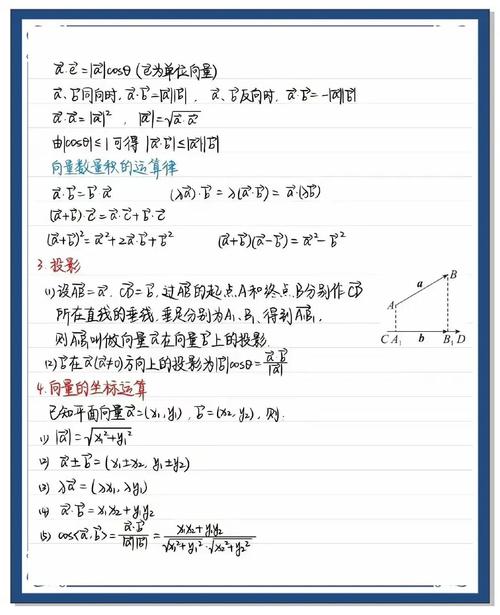 a⃗·e⃗=|a⃗|cosθ (e⃗为单位向量)
a⃗、b⃗同向时, a⃗·b⃗=|a⃗||b⃗|, a⃗、b⃗反向时, a⃗·b⃗=-|a⃗||b⃗|
a⃗·a⃗=|a⃗|², |a⃗|=√(a⃗·a⃗)
由|cosθ|≤1可得 |a⃗·b⃗|≤|a⃗||b⃗|
向量数量积的运算律
a⃗·b⃗=b⃗·a⃗ (λa⃗)·b⃗=λ(a⃗·b⃗)=a⃗·(λb⃗)
(a⃗+b⃗)·c⃗=a⃗·c⃗+b⃗·c⃗
(a⃗+b⃗)²=a⃗²+2a⃗·b⃗+b⃗² (a⃗+b⃗)(a⃗-b⃗)=a⃗²-b⃗²
3.投影
(1)设AB⃗=a⃗, CD⃗=b⃗, 过AB⃗的起点A和终点B分别作CD⃗
所在直线的垂线, 垂足分别为A₁、B₁、得到A₁B₁⃗,
则A₁B₁⃗叫做向量a⃗在向量b⃗上的投影.
A a B
C A₁ b B₁ D
(2)b⃗在a⃗(a⃗≠0)方向上的投影为|b⃗|cosθ=a⃗·b⃗/|a⃗|
4.向量的坐标运算
已知平面向量a⃗=(x₁,y₁), b⃗=(x₂,y₂), 则:
(1) |a⃗|=√(x₁²+y₁²)
(2) a⃗±b⃗=(x₁±x₂, y₁±y₂)
(3) λa⃗=(λx₁, λy₁)
(4) a⃗·b⃗=x₁x₂+y₁y₂
(5) cos<a⃗,b⃗>=a⃗·b⃗/|a⃗||b⃗|=(x₁x₂+y₁y₂)/(√(x₁²+y₁²)·√(x₂²+y₂²))